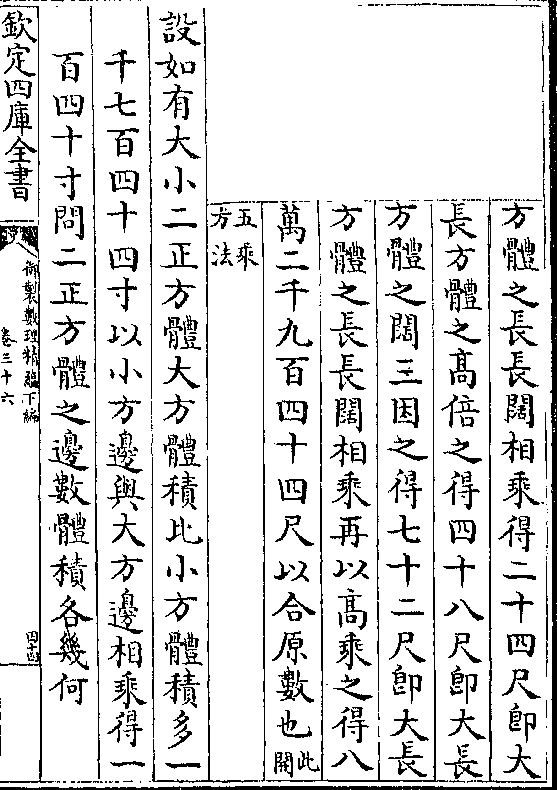 方體之長長闊相乘得二十四尺卽大
長方體之高倍之得四十八尺卽大長
方體之闊三因之得七十二尺卽大長
方體之長長闊相乘再以高乘之得八
萬二千九百四十四尺以合原數也此開
五乘方法
設如有大小二正方體大方體積比小方體積多一
千七百四十四寸以小方邊與大方邊相乘得一
百四十寸問二正方體之邊數體積各幾何
欽定四庫全書
御製數理精蘊下編
卷三十六
四十四